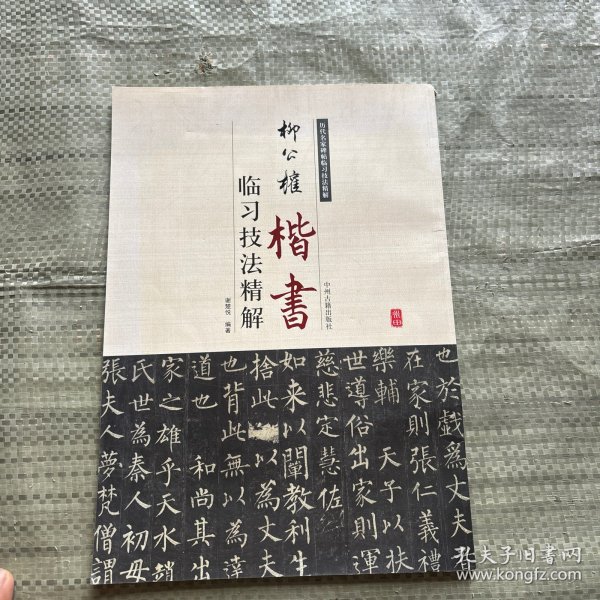 历代名家碑帖临习技法精解
柳公權
楷書
临习技法精解
谢慧悦 编著
中州古籍出版社
也於戲為丈夫
在家則張仁義禮
樂輔 天子以扶
世導俗出家則運
慈悲定慧佐
如来以闡教利生
捨此 以為丈夫
也背此無以為達
道也 和尚其出
家之雄乎天水趙
氏世為秦人初母
張夫人夢梵僧謂
孔夫子旧书网
www.kongfz.com